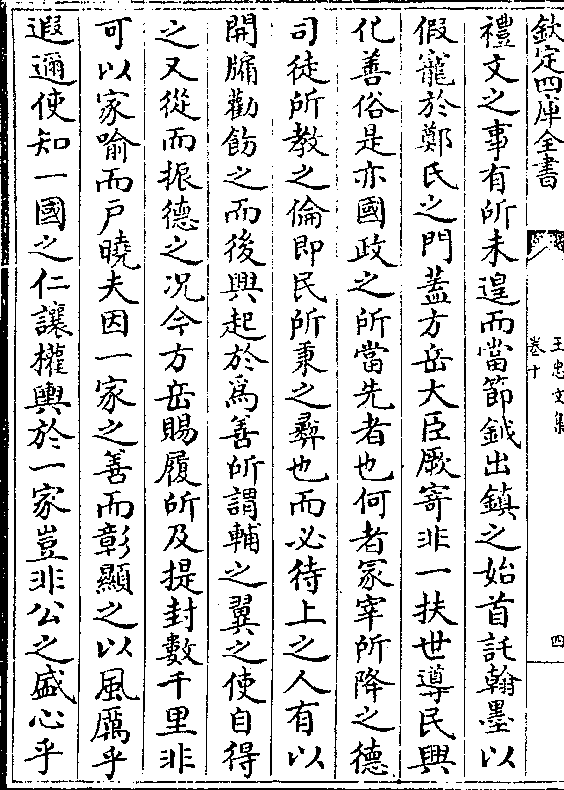 欽定四庫全書
王忠文集
卷十
四
禮文之事有所未遑而當節鉞出鎮之始首託翰墨以
假寵於鄭氏之門蓋方岳大臣厥寄非一扶世導民興
化善俗是亦國政之所當先者也何者冢宰所降之德
司徒所教之倫即民所秉之彛也而必待上之人有以
開牖勸飭之而後興起於為善所謂輔之翼之使自得
之又從而振德之况今方岳賜履所及提封數千里非
可以家喻而戸曉夫因一家之善而彰顯之以風厲乎
遐邇使知一國之仁讓權輿於一家豈非公之盛心乎